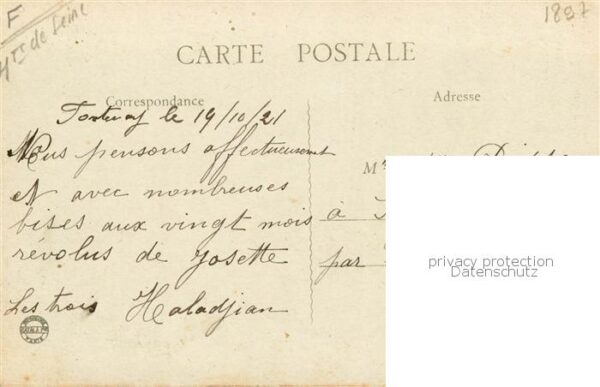 F
Hts de Seine
1897
CARTE POSTALE
Correspondance
Adresse
le 19/10/21
Nous pensons affectueusement
et avec nombreuses
bises aux vingt mois
révolus de Josette
Les trois Haladjian
à
par
privacy protection
Datenschutz